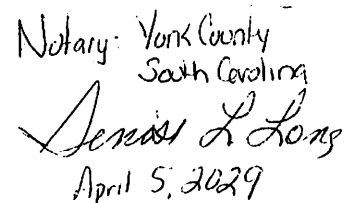 Notary: York County
South Carolina
L Long
April 5, 2029